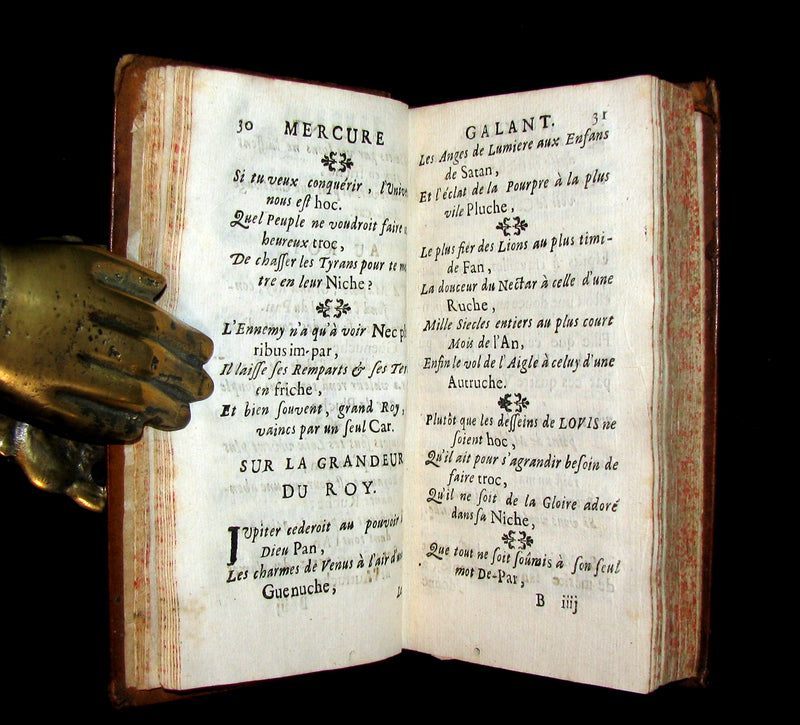 30 MERCURE
Si tu veux conquérir, l'Univ
nous eſt hoc.
Quel Peuple ne voudroit faire
heureux troc,
De chaſſer les Tyrans pour te
tre en leur Niche?
L'Ennemy n'a qu'à voir Nec pl
ribus im-par,
Il laiſſe ſes Remparts & ſes Ter
en friche,
Et bien ſouvent, grand Roy,
vaincs par un ſeul Car.
SUR LA GRANDEUR
DU ROY.
Jupiter cederoit au pouvoir
Dieu Pan,
Les charmes de Venus à l'air d'u
Guenuche,
GALANT. 31
Les Anges de Lumiere aux Enfans
de Satan,
Et l'éclat de la Pourpre à la plus
vile Pluche,
Le plus fier des Lions au plus timi-
de Fan,
La douceur du Nectar à celle d'une
Ruche,
Mille Siecles entiers au plus court
Mois de l'An,
Enfin le vol de l'Aigle à celuy d'une
Autruche.
Plutôt que les deſſeins de LOVIS ne
ſoient hoc,
Qu'il ait pour s'agrandir beſoin de
faire troc,
Qu'il ne ſoit de la Gloire adoré
dans ſa Niche,
Que tout ne ſoit ſoûmis à ſon ſeul
mot De-Par,
B iiij